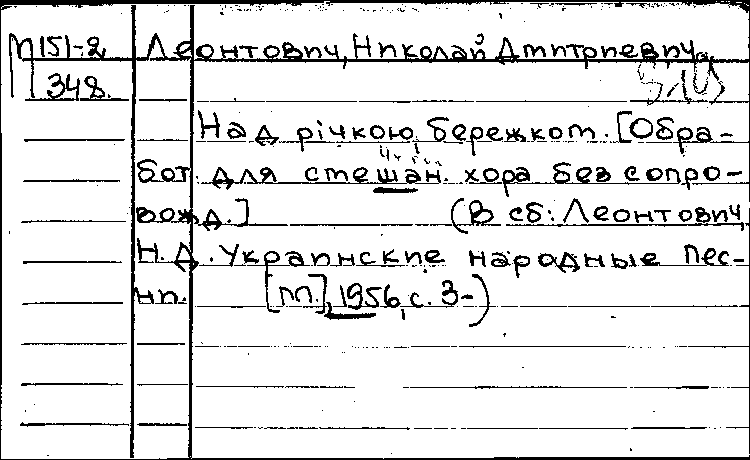 М 151-2 Леонтович, Николай Дмитриевич.
348.
Над річкою бережком. [Обра-
бот. для смешан. хора без сопро-
вожд.] (В сб: Леонтович,
Н.Д. Украинские народные пес-
ни. [М.], 1956, с. 3-)